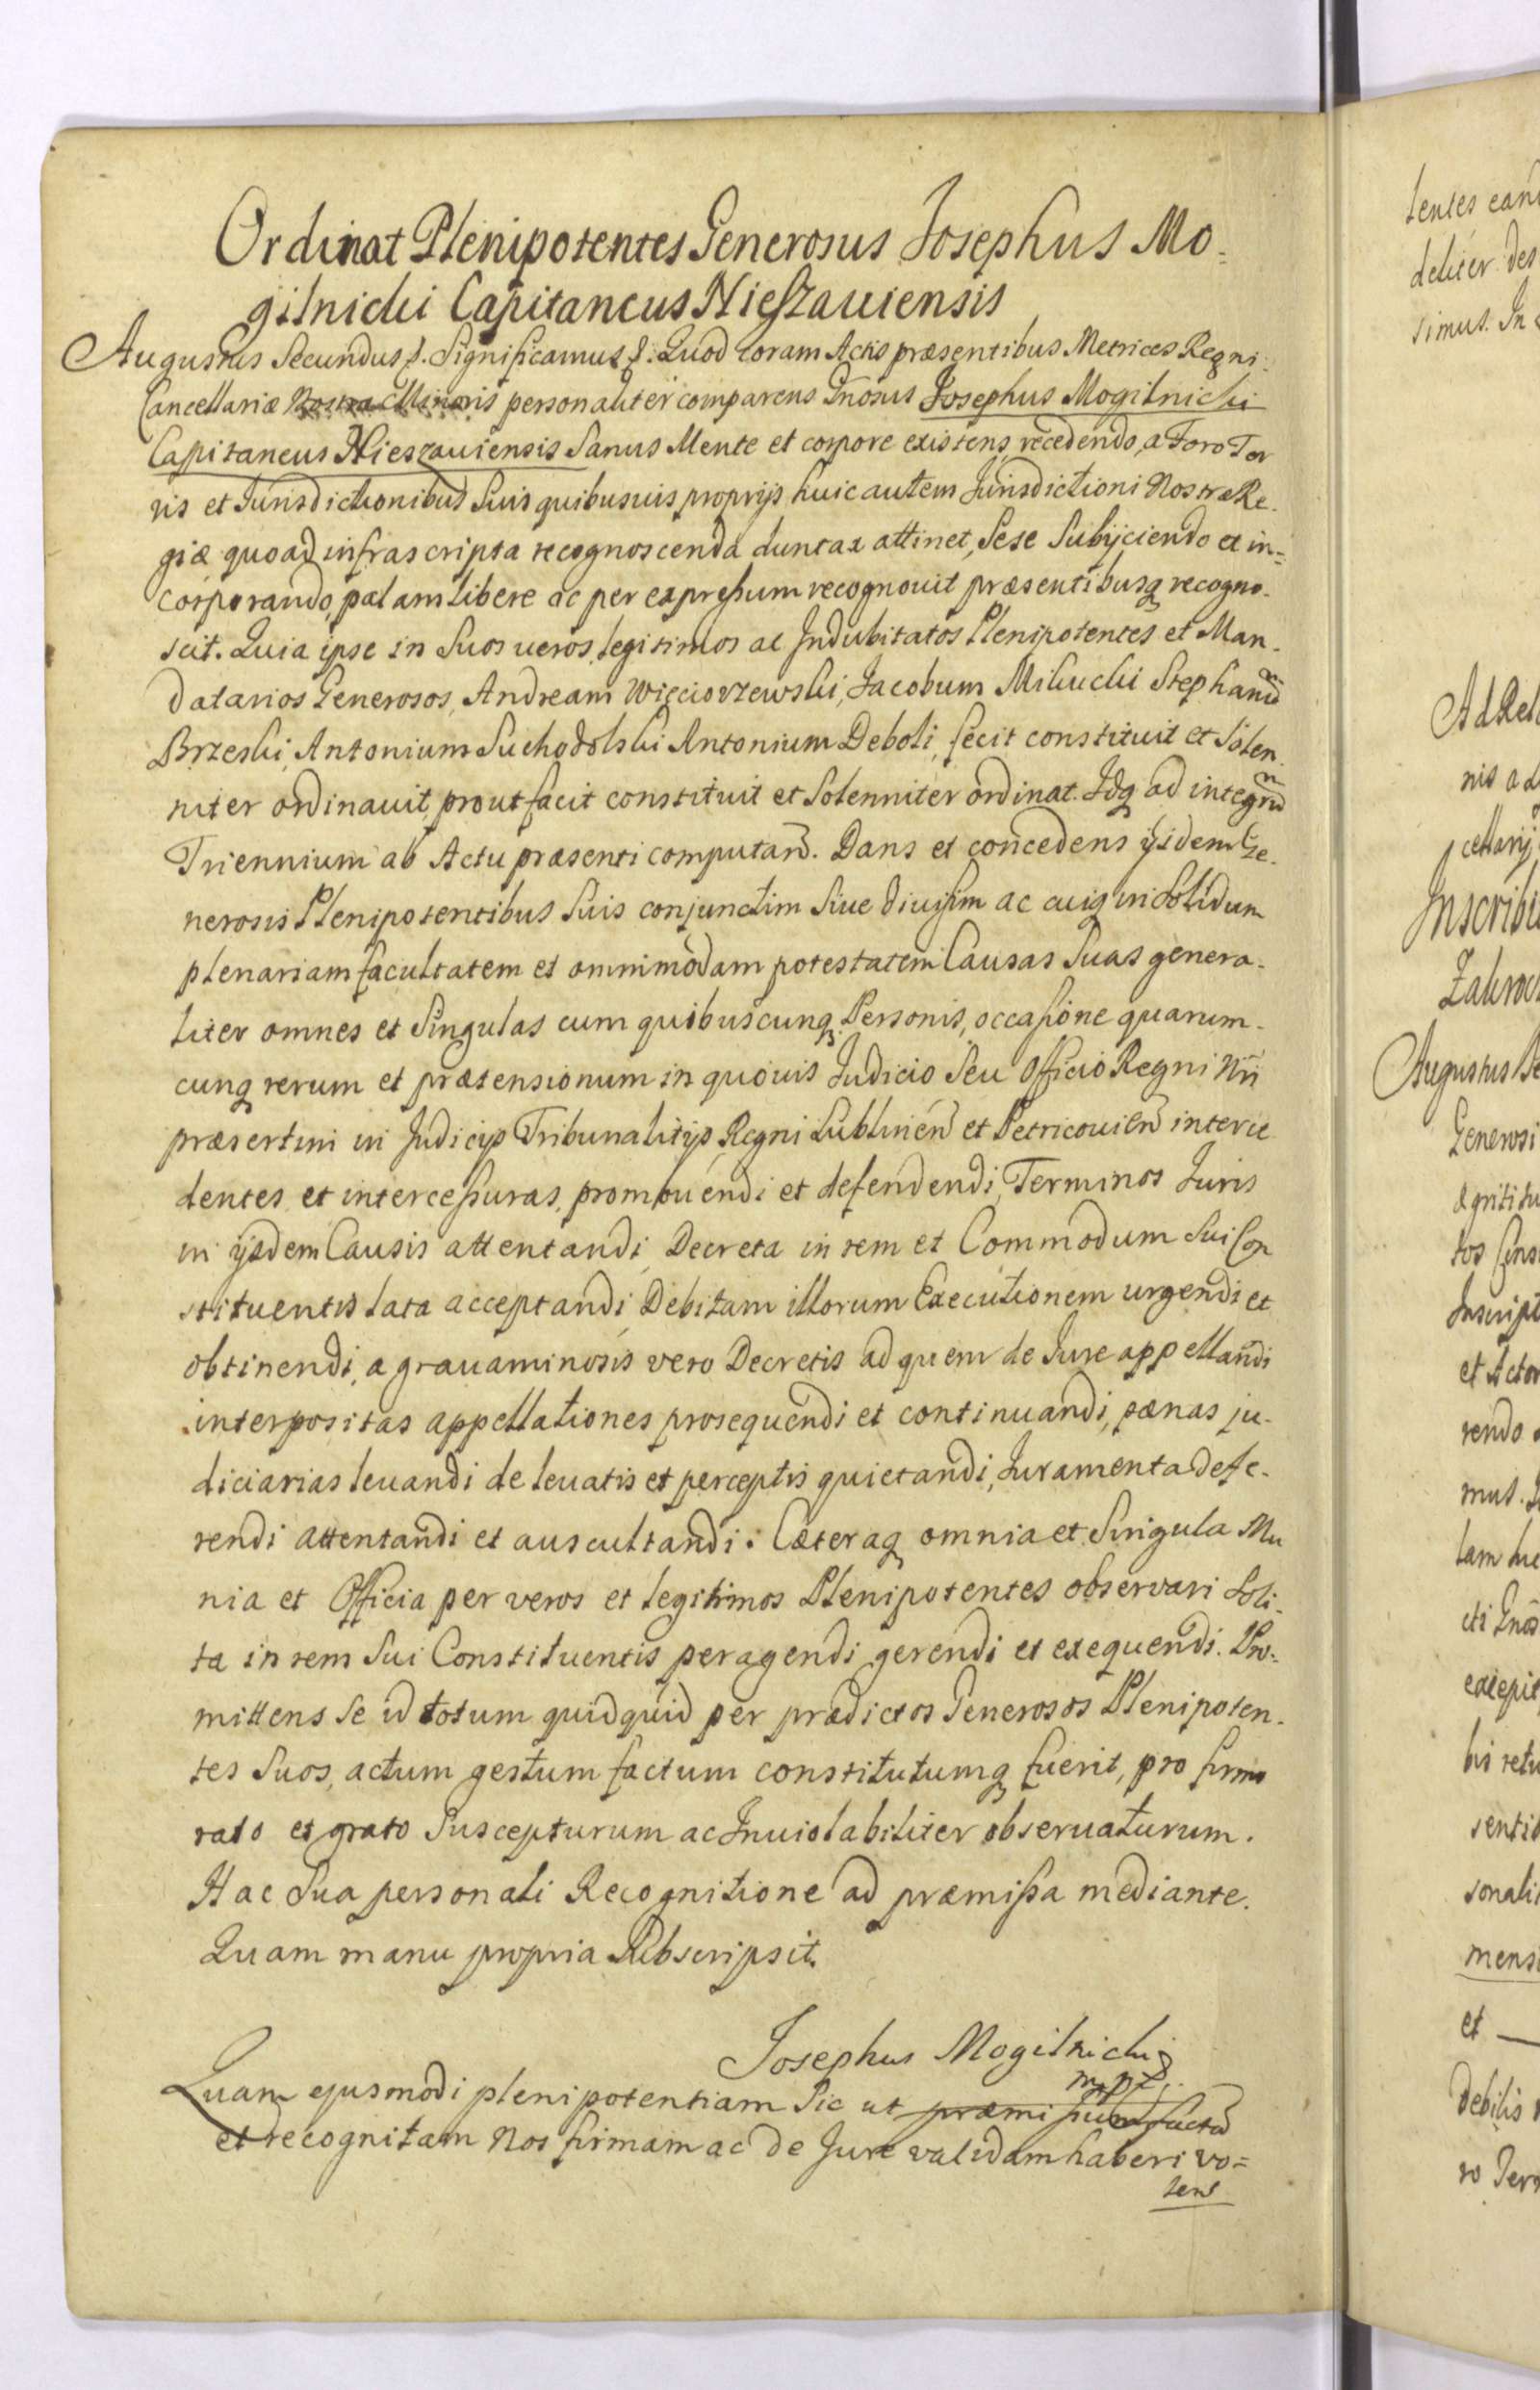 Ordinat Plenipotentes Generosus Josephus Mo=
gilnicki Capitaneus Nieszauiensis
Augustus Secundus &. Significamus &. Quod coram Actis præsentibus Metrices Regni
Cancellariæ Nostra Minoris personaliter comparens Gnosus Josephus Mogilnicki
Capitaneus Nieszauiensis Sanus Mente et corpore existens, recedendo, a Foro Ter
ris et Jurisdictionibus Suis quibusuis proprijs huic autem Jurisdictioni Nostræ Re-
giæ quoad infrascripta recognoscenda duntax attinet, Sese Subijciendo et in=
corporando, palam libere ac per expressum recognouit præsentibusq recogno-
scit. Quia ipse in Suos ueros, legitimos ac Indubitatos Plenipotentes et Man-
datarios Generosos, Andream Więciorzewski, Jacobum Milucki Stephanū
Brzeski, Antonium Suchodolski Antonium Deboli, fecit constituit et Solen
niter ordinauit, prout facit constituit et Solenniter ordinat. Idq ad integrū
Triennium ab Actu præsenti computan̄. Dans et concedens ijsdem Ge-
nerosis Plenipotentibus Suis conjunctim Siue diuisim ac cuiq in Solidum
plenariam facultatem et omnimodam potestatem Causas Suas genera-
liter omnes et Singulas cum quibuscunq Personis, occasione quarum-
cunq rerum et prætensionum in quouis Judicio Seu Officio Regni Nri
præsertim in Judicijs Tribunalitijs Regni Lublinen̄ et Petricouien̄ interce
dentes et intercessuras, promouendi et defendendi, Terminos Juris
in ijsdem Causis attentandi, Decreta in rem et Commodum Sui Con
stituentis lata acceptandi, Debitam illorum Executionem urgendi et
obtinendi, a grauaminosis vero Decretis ad quem de Jure appellandi
interpositas appellationes prosequendi et continuandi, pænas ju-
diciarias leuandi de leuatis et perceptis quietandi, Juramenta defe-
rendi attentandi et auscultandi. Cæteraq omnia et Singula Mu
nia et Officia per veros et legitimos Plenipotentes observari Soli-
ta in rem Sui Constituentis peragendi gerendi et exequendi. Pro=
mittens Se id totum quidquid per prædictos Generosos Plenipoten-
tes Suos, actum gestum factum constitutumq fuerit, pro firmo
rato et grato Suscepturum ac Inuiolabiliter obseruaturum.
Hac Sua personali Recognitione ad præmissa mediante.
Quam manu propria Subscripsit.
Josephus Mogilnicki
mpp.
Quam ejusmodi plenipotentiam Sic ut præmissum factā
et recognitam Nos firmam ac de Jure validam haberi vo=
lent